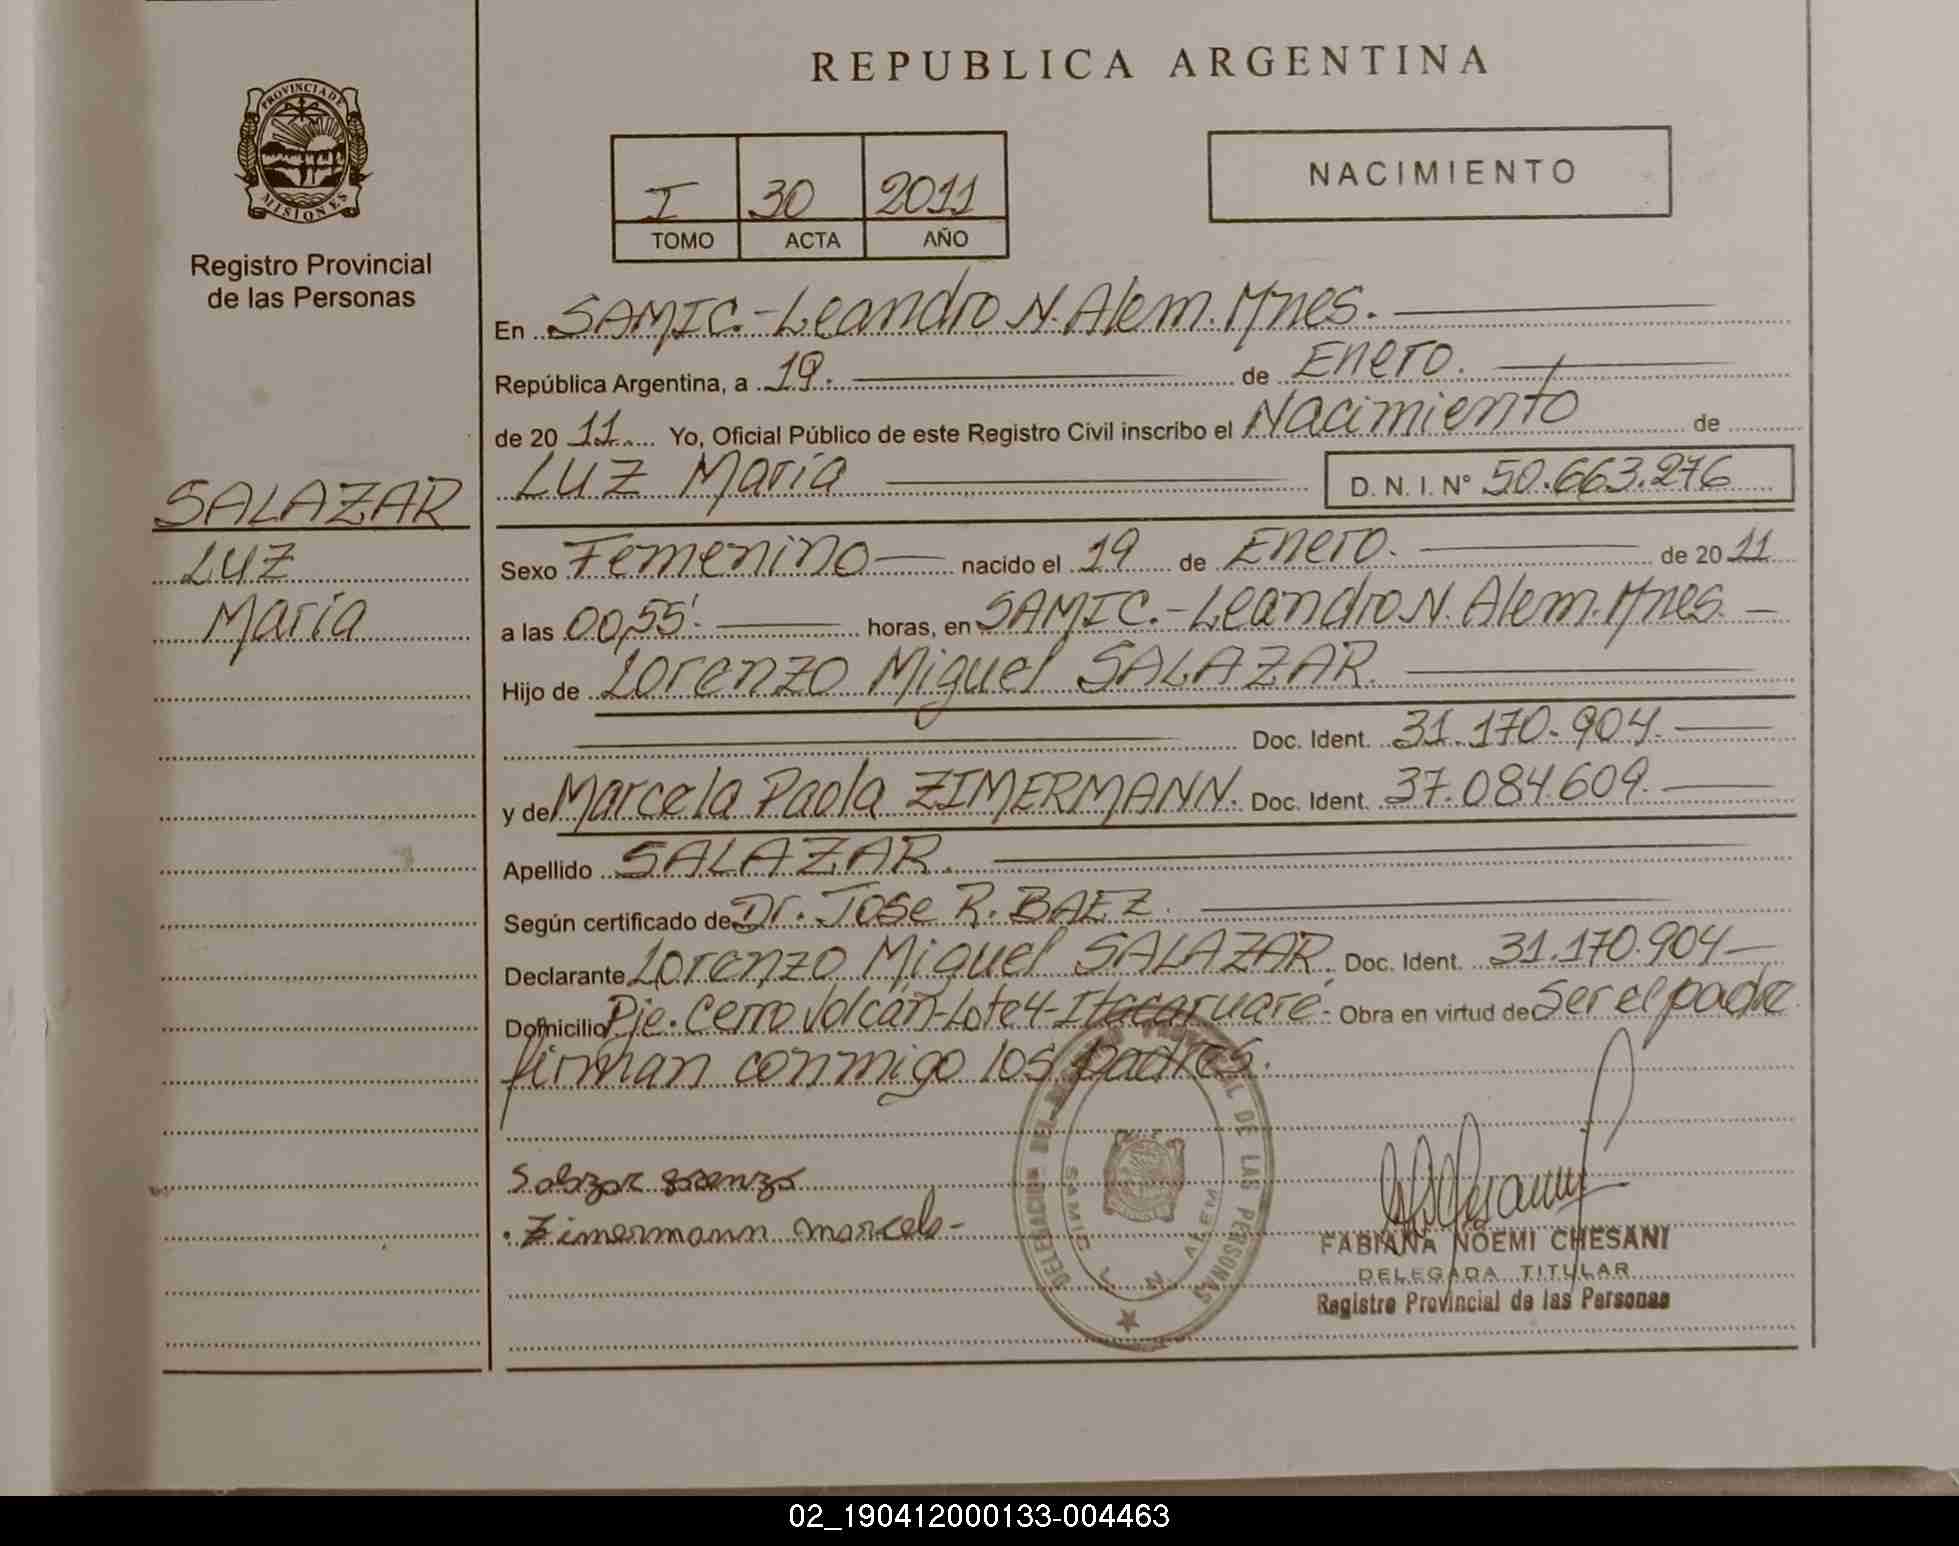 REPUBLICA ARGENTINA
PROVINCIA DE
MISIONES
Registro Provincial
de las Personas
I 30 2011
TOMO ACTA AÑO
NACIMIENTO
En SAMIC.-Leandro N. Alem. Mnes.
República Argentina, a 19. de Enero.
de 20 11 Yo, Oficial Público de este Registro Civil inscribo el Nacimiento de
LUZ María D. N. I. N° 50.663.276
SALAZAR
LUZ
María
Sexo Femenino nacido el 19 de Enero. de 20 11
a las 00,55' horas, en SAMIC.-Leandro N. Alem. Mnes.
Hijo de Lorenzo Miguel SALAZAR.
Doc. Ident. 31.170.904.
y de Marcela Paola ZIMERMANN. Doc. Ident. 37.084.609.
Apellido SALAZAR.
Según certificado de Dr. Jose R. BAEZ.
Declarante Lorenzo Miguel SALAZAR. Doc. Ident. 31.170.904
Domicilio Pje. Cerro Volcán-Lote 4-Itacaruaré- Obra en virtud de Ser el padre
firman conmigo los padres.
Salazar Lorenzo
Zimermann Marcela
DELEGACION DEL REGISTRO PROVINCIAL DE LAS PERSONAS
SAMIC L N ALEM
FABIANA NOEMI CHESANI
DELEGADA TITULAR
Registro Provincial de las Personas
02_190412000133-004463